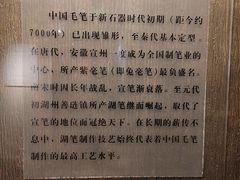 中国毛笔于新石器时代初期（距今约
7000年）已出现雏形，至秦代基本定型。
在唐代，安徽宣州一度成为全国制笔业的
中心，所产紫毫笔（即兔毫笔）最负盛名。
南宋时因长年战乱，宣笔渐衰落。至元代
初湖州善琏镇所产湖笔继而崛起，取代了
宣笔的地位而冠绝天下。在长期的薪传不
息中，湖笔制作技艺始终代表着中国毛笔
制作的最高工艺水平。